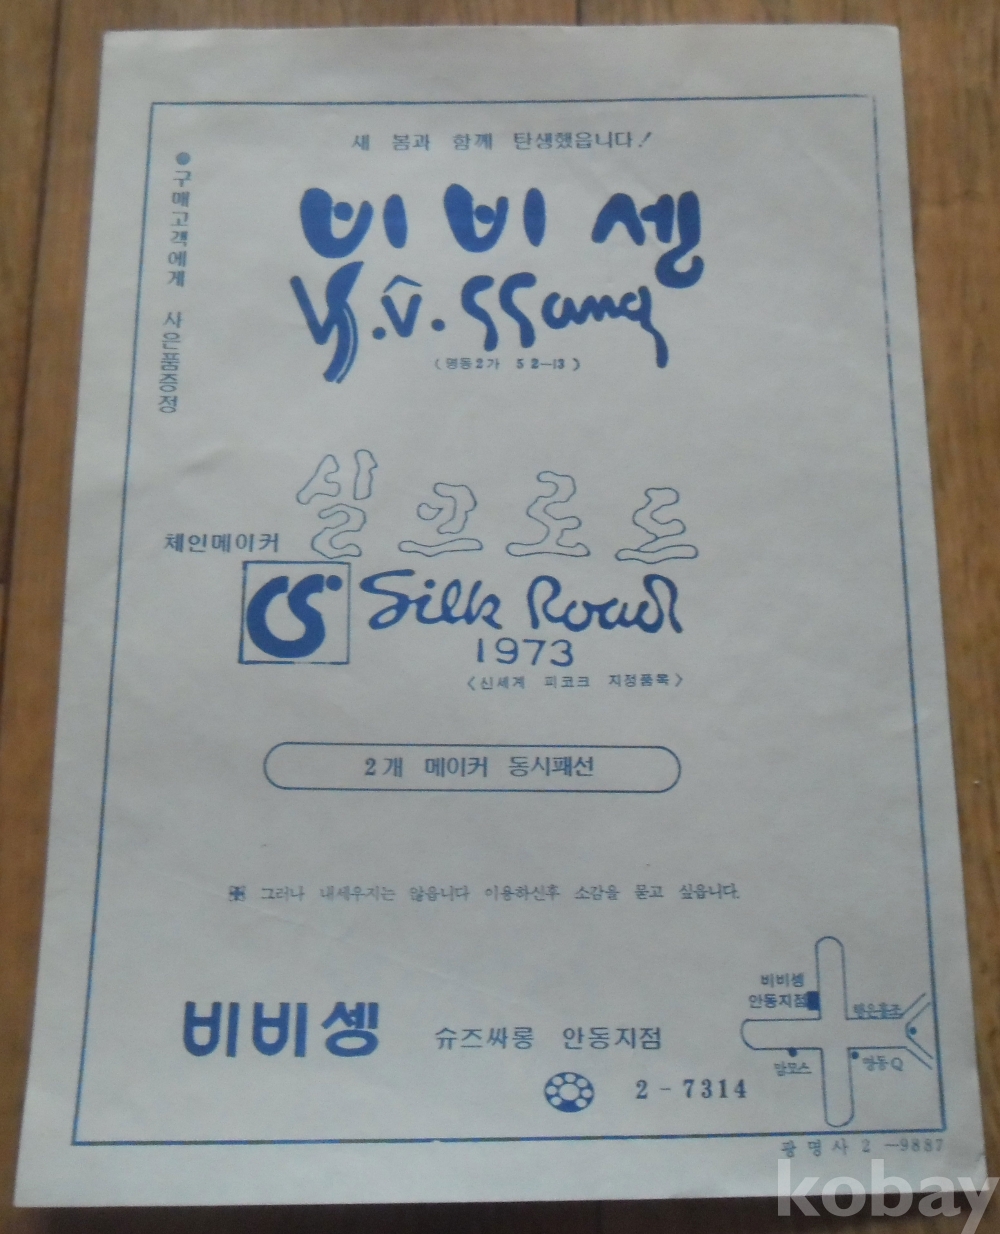 새 봄과 함께 탄생했읍니다!
●구매고객에게 사은품증정
비비셍
V.V.SSang
(명동2가 52-13)
체인메이커
실크로드
CS
Silk Road
1973
<신세계 피코크 지정품목>
2개 메이커 동시패선
※ 그러나 내세우지는 않읍니다 이용하신후 소감을 묻고 싶읍니다.
비비셍
안동지점
맘모스
명동Q
비비셍 슈즈싸롱 안동지점
2-7314
광명사 2-9887
kobay